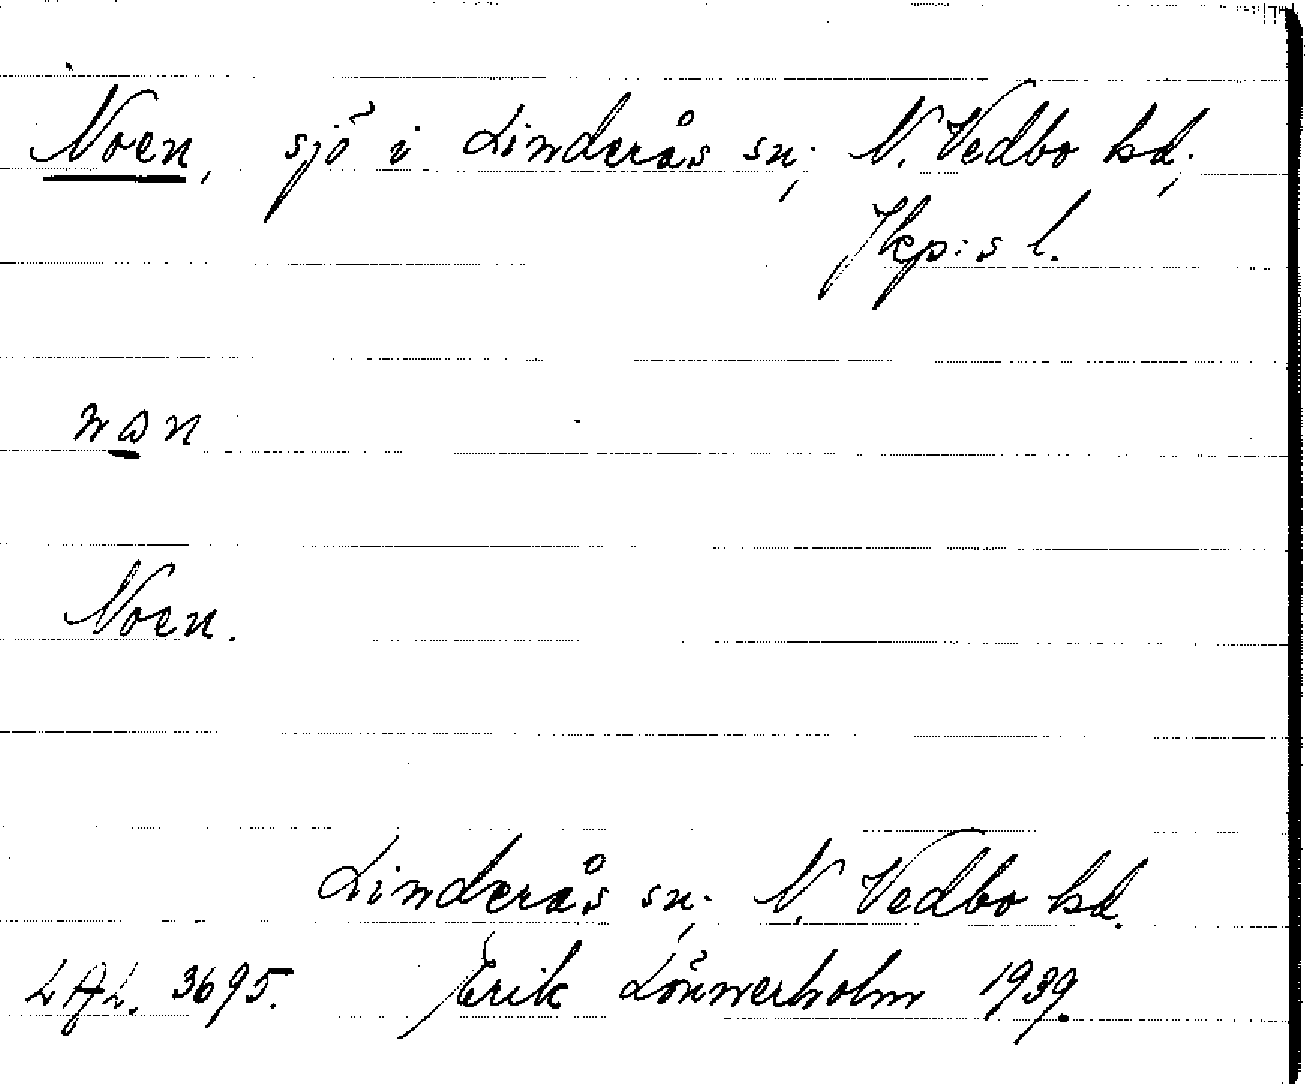 Noen, sjö i Linderås sn., N. Vedbo hd.,
Jkp:s l.
Noen.
Linderås sn., N. Vedbo hd.
LAL. 3695. Erik Lönnerholm 1939.